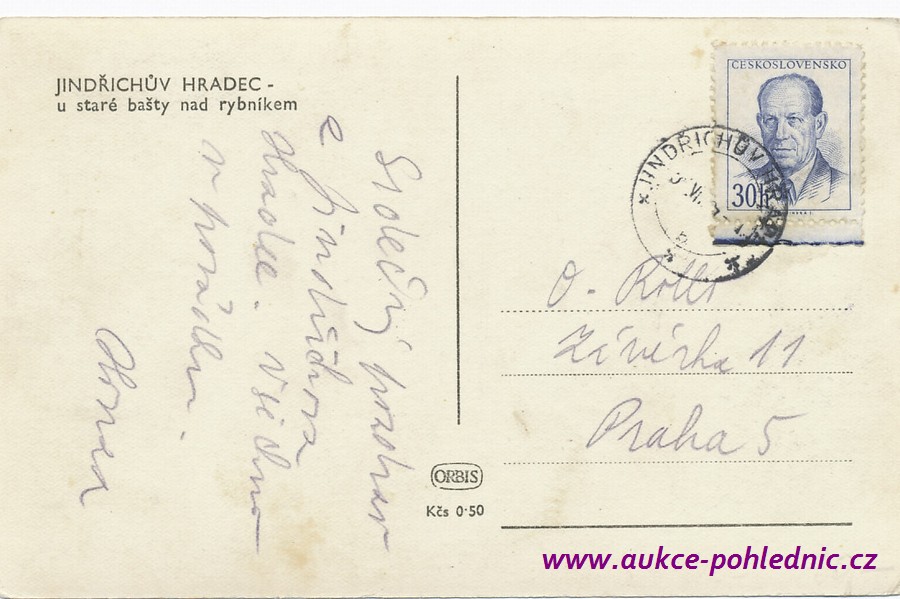 JINDŘICHŮV HRADEC -
u staré bašty nad rybníkem
Srdečný pozdrav
z Jindřichova
Hradce. Všechno
v pořádku.
ČESKOSLOVENSKO
30h
JINDŘICHŮV HRADEC
O. Kolls
Závěrka 11
Praha 5
ORBIS
Kčs 0·50
www.aukce-pohlednic.cz